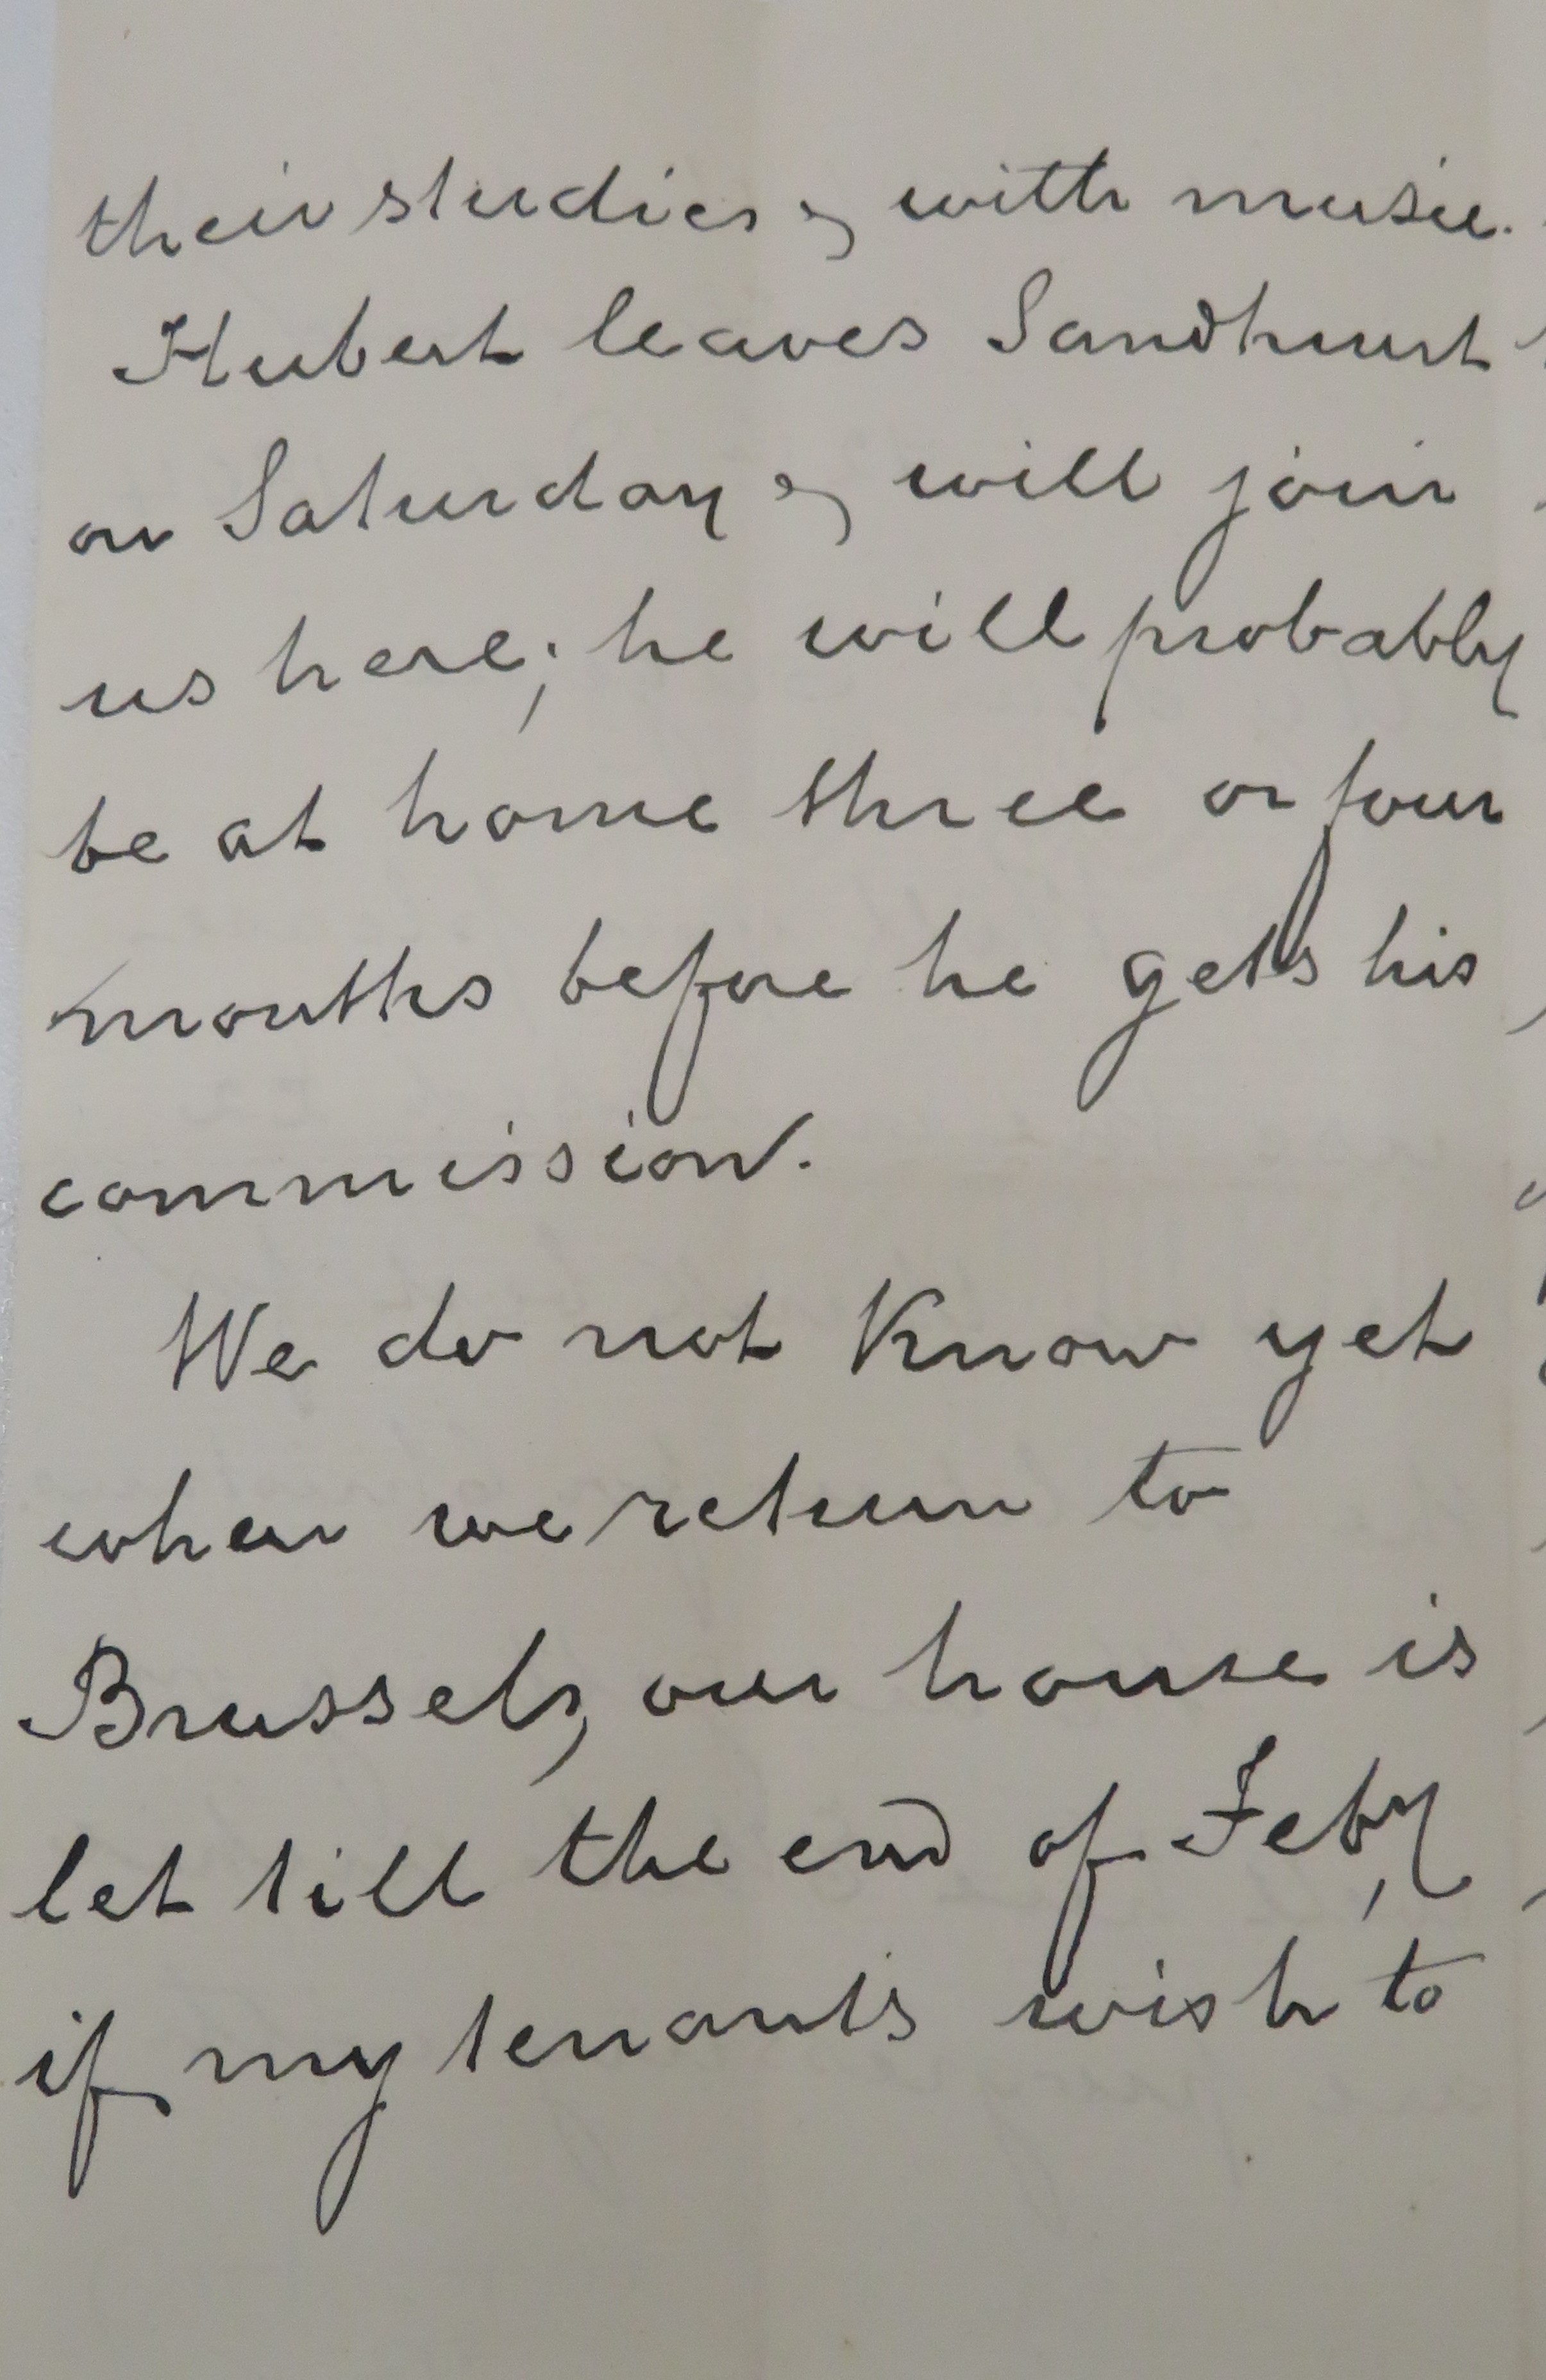 their studies & with music.
Hubert leaves Sandhurst
on Saturday & will join
us here; he will probably
be at home three or four
months before he gets his
commission.
We do not know yet
when we return to
Brussels, our house is
let till the end of Feby,
if my tenants wish to